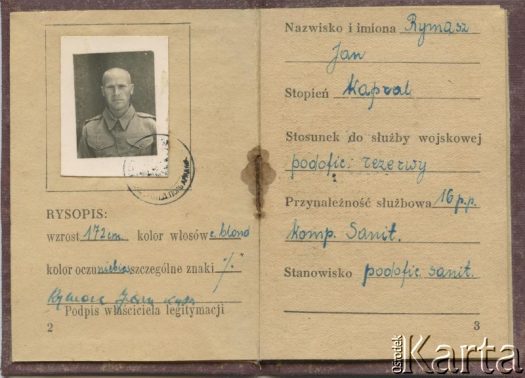 RYSOPIS:
wzrost 172 cm kolor włosów c. blond
kolor oczu niebies. szczególne znaki %.
Rymasz Jan
Podpis właściciela legitymacji
2
Nazwisko i imiona Rymasz
Jan
Stopień Kapral
Stosunek do służby wojskowej
podofic. rezerwy
Przynależność służbowa 16 p.p.
komp. Sanit.
Stanowisko podofic. sanit.
3
Ośrodek
Karta
www.karta.org.pl